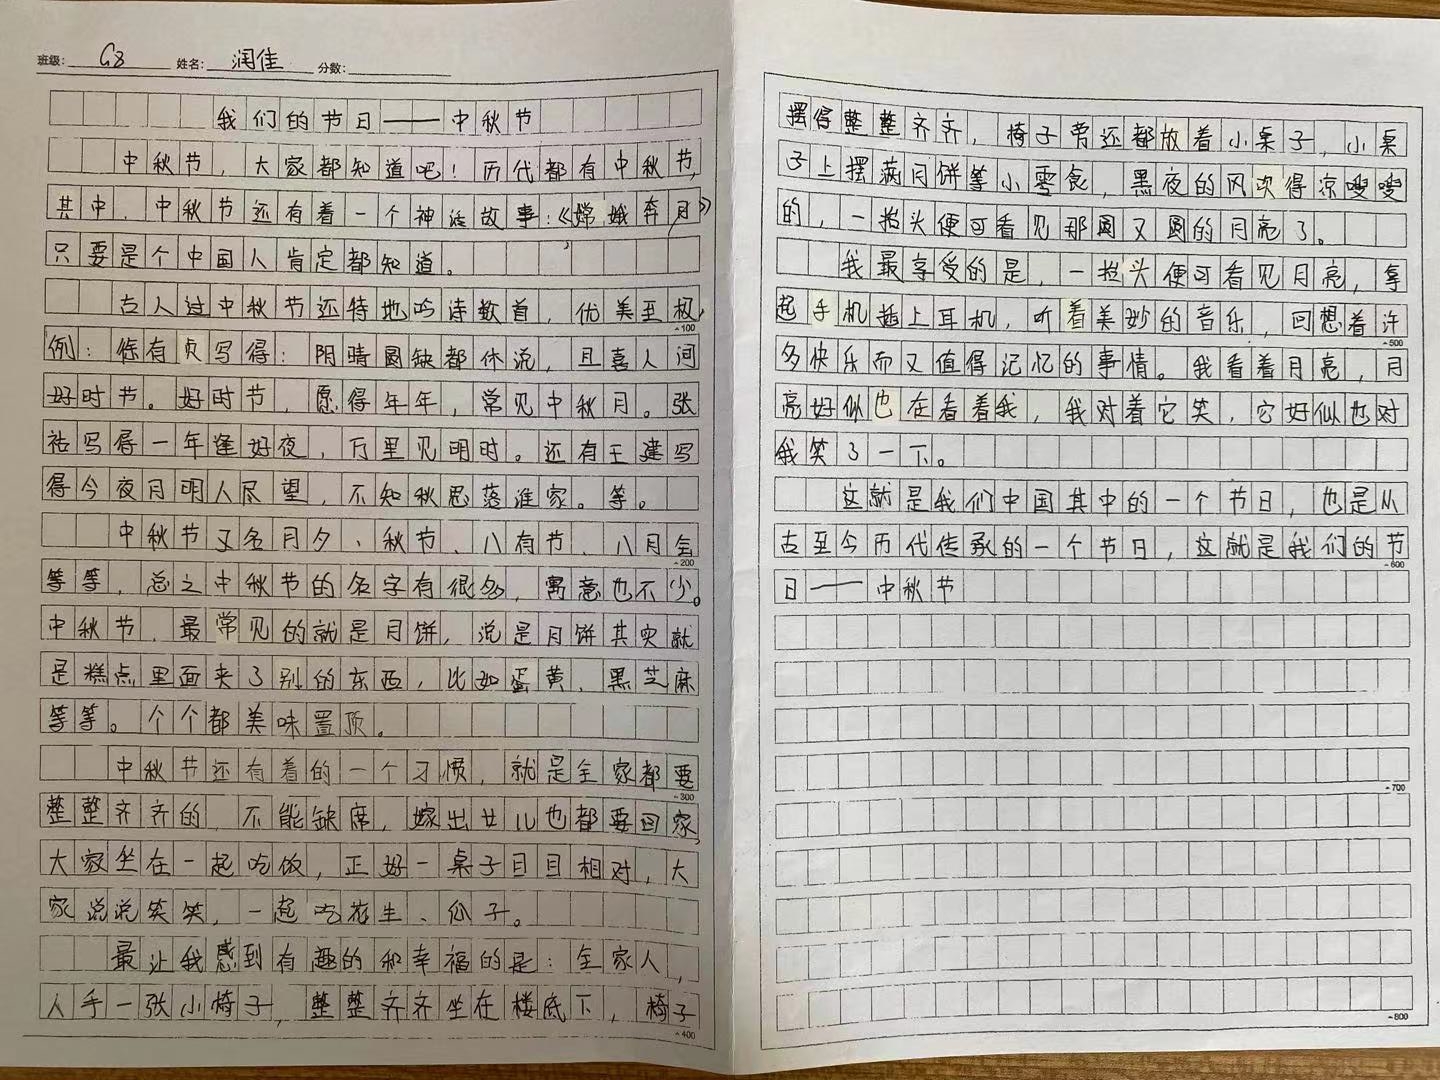 班级: G8 姓名: 润佳 分数:
我们的节日——中秋节
中秋节，大家都知道吧！历代都有中秋节，
其中、中秋节还有着一个神话故事：《嫦娥奔月》
只要是个中国人肯定都知道。
古人过中秋节还特地吟诗数首，优美至极，
-100
例：徐有贞写得：阴晴圆缺都休说，且喜人间
好时节。好时节，愿得年年，常见中秋月。张
祜写得一年逢好夜，万里见明时。还有王建写
得今夜月明人尽望，不知秋思落谁家。等。
中秋节又名月夕、秋节、八有节、八月会
-200
等等，总之中秋节的名字有很多，寓意也不少。
中秋节、最常见的就是月饼，说是月饼其实就
是糕点里面夹了别的东西，比如蛋黄、黑芝麻
等等。个个都美味置顶。
中秋节还有着的一个习惯，就是全家都要
-300
整整齐齐的，不能缺席，嫁出女儿也都要回家，
大家坐在一起吃饭，正好一桌子目目相对，大
家说说笑笑，一起吃花生、瓜子。
最让我感到有趣的和幸福的是：全家人，
人手一张小椅子，整整齐齐坐在楼底下，椅子
-400
摆得整整齐齐，椅子旁还都放着小桌子，小桌
子上摆满月饼等小零食，黑夜的风吹得凉嗖嗖
的，一抬头便可看见那圆又圆的月亮了。
我最享受的是，一抬头便可看见月亮，拿
起手机插上耳机，听着美妙的音乐，回想着许
-500
多快乐而又值得记忆的事情。我看着月亮，月
亮好似也在看着我，我对着它笑，它好似也对
我笑了一下。
这就是我们中国其中的一个节日，也是从
古至今历代传承的一个节日，这就是我们的节
-600
日——中秋节
-700
-800